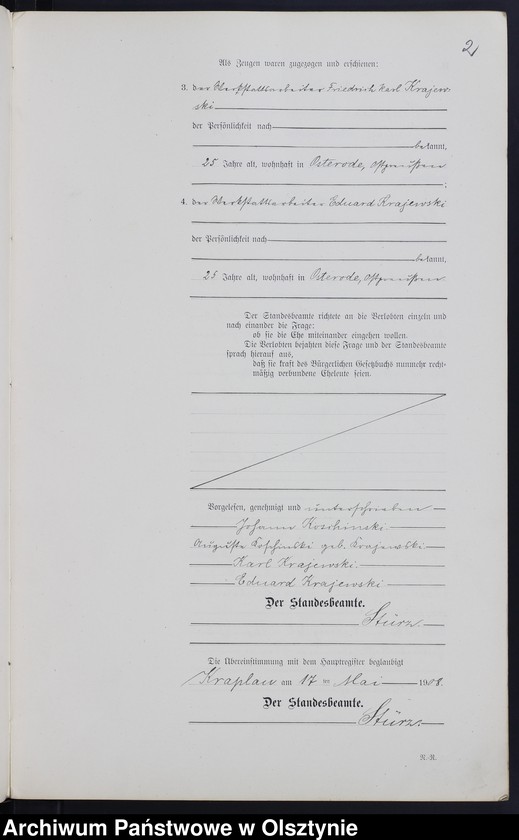 2
Als Zeugen waren zugezogen und erschienen:
3. der Werkstattsarbeiter Friedrich Karl Krajew-
ski
der Persönlichkeit nach
bekannt,
25 Jahre alt, wohnhaft in Osterode, Ostpreußen
;
4. der Werkstattsarbeiter Eduard Krajewski
der Persönlichkeit nach
bekannt,
25 Jahre alt, wohnhaft in Osterode, Ostpreußen
Der Standesbeamte richtete an die Verlobten einzeln und
nach einander die Frage:
ob sie die Ehe miteinander eingehen wollen.
Die Verlobten bejahten diese Frage und der Standesbeamte
sprach hierauf aus,
daß sie kraft des Bürgerlichen Gesetzbuchs nunmehr recht-
mäßig verbundene Eheleute seien.
Vorgelesen, genehmigt und unterschrieben
Johann Koschinski
Auguste Koschinski geb. Krajewski
Karl Krajewski
Eduard Krajewski
Der Standesbeamte.
Stürz.
Die Übereinstimmung mit dem Hauptregister beglaubigt
Kraplau am 17 ten Mai 1908.
Der Standesbeamte.
Stürz.
R.-R.
Archiwum Państwowe w Olsztynie